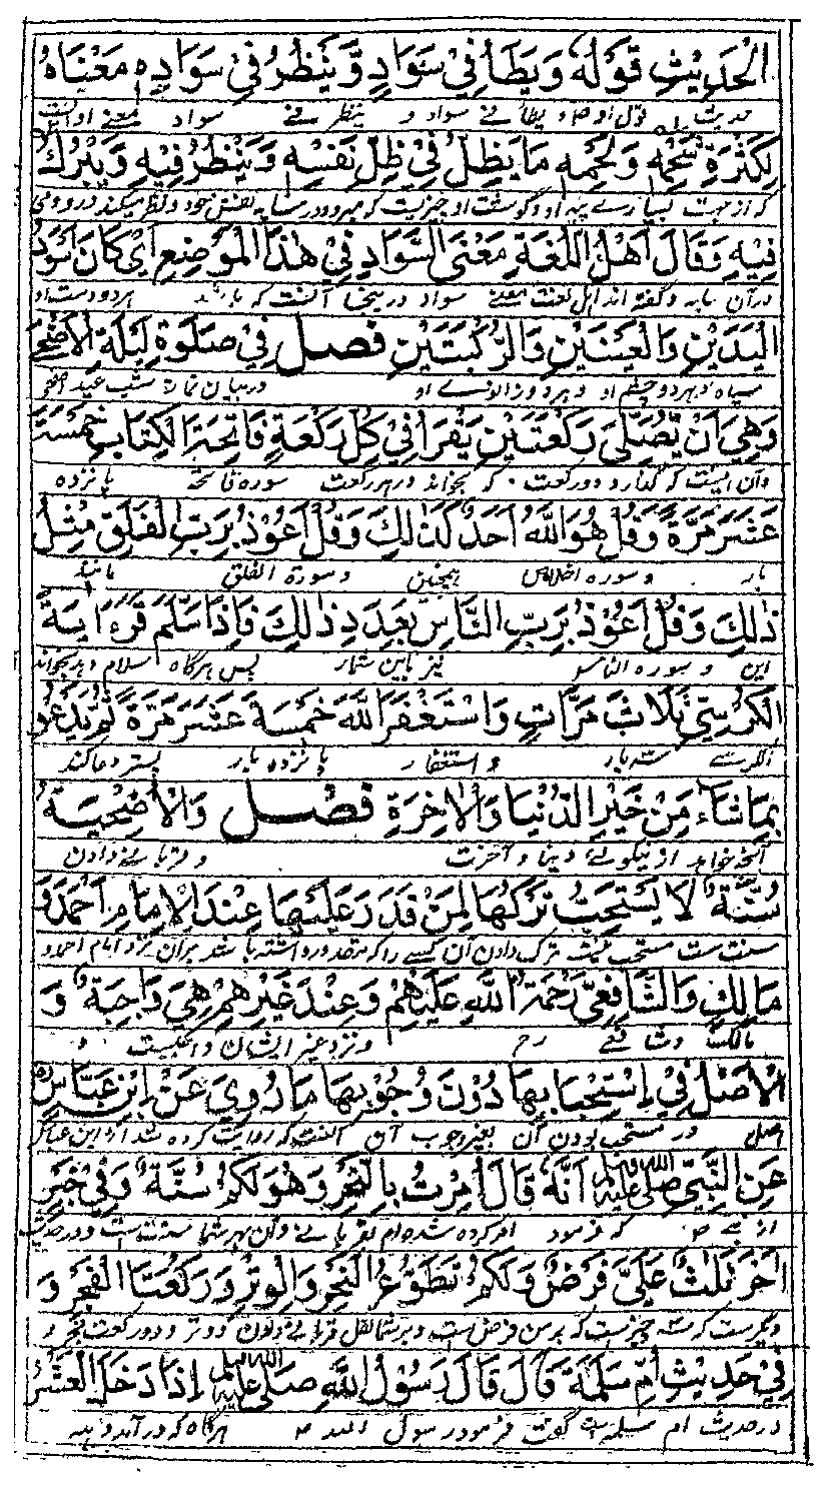 الْحَدِيْثِ قَوْلُهٗ وَيَطَأُ فِيْ سَوَادٍ وَّيَنْظُرُ فِيْ سَوَادِهٖ مَعْنَاهُ
حدیث قول او صلعم و یطأ فی سواد و ینظر فی سواد معنی او
لِكَثْرَةِ شَحْمِهٖ وَلَحْمِهٖ مَا يَظِلُّ فِيْ ظِلِّ نَفْسِهٖ وَيَنْظُرُ فِيْهِ وَيَبْرُكُ
که از جهت بسیاری پیه او و گوشت او چیزیست که میرود در سایه نفس خود و نظر میکند در و
فِيْهِ وَقَالَ اَهْلُ اللُّغَةِ مَعْنَى السَّوَادِ فِيْ هٰذَا الْمَوْضِعِ اَيْ كَانَ اَسْوَدَ
در آن سایه و گفته اند اهل لغت معنی سواد درینجا آنست که باشد هر دو دست او
الْيَدَيْنِ وَالْعَيْنَيْنِ وَالرُّكْبَتَيْنِ فصل فِيْ صَلٰوةِ لَيْلَةِ الْاَضْحٰى
سیاه و هر دو چشم او و هر دو زانوی او در بیان نماز شب عید اضحی
وَهِيَ اَنْ يُّصَلِّيَ رَكْعَتَيْنِ يَقْرَاُ فِيْ كُلِّ رَكْعَةٍ فَاتِحَةَ الْكِتَابِ خَمْسَةَ
و آن اینست که گذارد دو رکعت که بخواند در هر رکعت سوره فاتحه پانزده
عَشَرَ مَرَّةً وَقُلْ هُوَ اللّٰهُ اَحَدٌ كَذٰلِكَ وَقُلْ اَعُوْذُ بِرَبِّ الْفَلَقِ مِثْلَ
بار و سوره اخلاص همچنین و سورة الفلق مانند
ذٰلِكَ وَقُلْ اَعُوْذُ بِرَبِّ النَّاسِ بِعَدَدِ ذٰلِكَ فَاِذَا سَلَّمَ قَرَءَ اٰيَةَ
این و سوره الناس نیز باین شمار پس هرگاه سلام دهد بخواند
الْكُرْسِيِّ ثَلَاثَ مَرَّاتٍ وَاسْتَغْفَرَ اللّٰهَ خَمْسَةَ عَشَرَ مَرَّةً ثُمَّ يَدْعُوْ
الکرسی سه بار و استغفار پانزده بار پستر دعا کند
بِمَا شَاءَ مِنْ خَيْرِ الدُّنْيَا وَالْاٰخِرَةِ فصل وَالْاُضْحِيَةُ
آنچه خواهد از نیکوئی دنیا و آخرت و قربانی دادن
سُنَّةٌ لَا يَسْتَحِبُّ تَرْكُهَا لِمَنْ قَدَرَ عَلَيْهَا عِنْدَ الْاِمَامِ اَحْمَدَ وَ
سنت ست مستحب نیست ترک دادن آن کسی را که مقدور داشته باشد بر آن نزد امام احمد و
مَالِكٍ وَالشَّافِعِيِّ رَحْمَةُ اللّٰهِ عَلَيْهِمْ وَعِنْدَ غَيْرِهِمْ هِيَ وَاجِبَةٌ وَ
مالک و شافعی رح و نزد غیر ایشان واجبست و
الْاَصْلُ فِيْ اِسْتِحْبَابِهَا دُوْنَ وُجُوْبِهَا مَا رُوِيَ عَنْ اِبْنِ عَبَّاسٍ
اصل در مستحب بودن آن بغیر وجوب آن آنست که روایت کرده شد از ابن عباس
عَنِ النَّبِيِّ صَلَّى اللّٰهُ عَلَيْهِ وَسَلَّمَ اَنَّهٗ قَالَ اُمِرْتُ بِالنَّحْرِ وَهُوَ لَكُمْ سُنَّةٌ وَفِيْ خَبَرٍ
از نبی ص که فرمود امر کرده شده ام بقربانی و آن بهر شما سنت ست و در حدیث
اٰخَرَ ثَلٰثٌ عَلَيَّ فَرْضٌ وَلَكُمْ تَطَوُّعٌ النَّحْرُ وَالْوِتْرُ وَرَكْعَتَا الْفَجْرِ وَ
دیگرست که سه چیزست که بر من فرض است و بر شما نفل قربانی و وتر و دو رکعت فجر و
فِيْ حَدِيْثِ اُمِّ سَلَمَةَ قَالَ قَالَ رَسُوْلُ اللّٰهِ صَلَّى اللّٰهُ عَلَيْهِ وَسَلَّمَ اِذَا دَخَلَ الْعَشْرُ
در حدیث ام سلمه است گفت فرمود رسول الله ص هرگاه که در آید